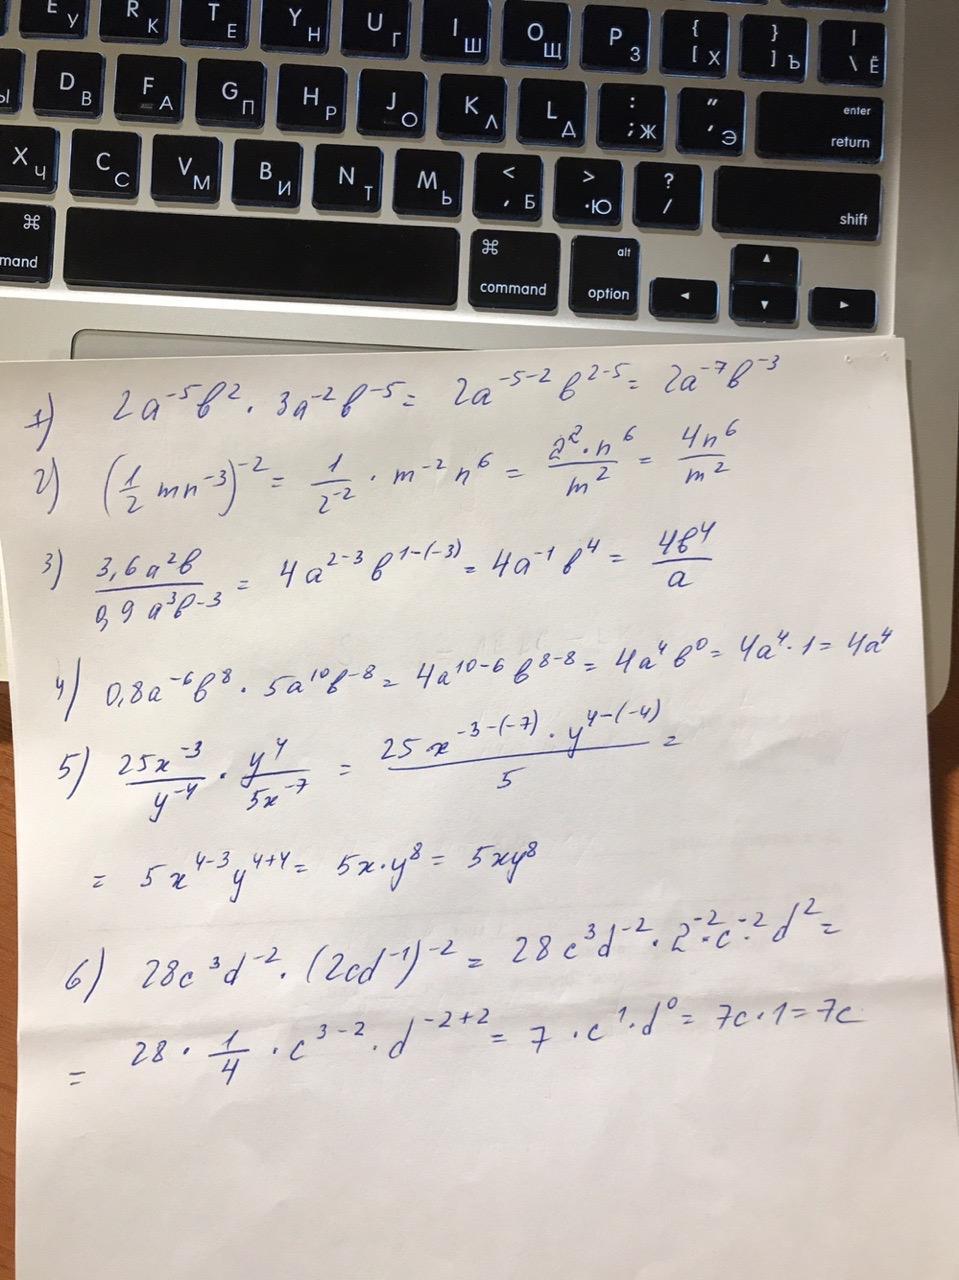 E У R К T Е Y Н U Г I Ш O Щ P З { [ Х } ] Ъ | \ Ё
Ы D В F А G П H Р J О K Л L Д : ; Ж " ' Э enter return
X Ч C С V М B И N Т M Ь < , Б > . Ю ? / shift
⌘ mand ⌘ command alt option ◄ ▲ ▼ ►
1) 2a⁻⁵b² · 3a⁻²b⁻⁵ = 2a⁻⁵⁻² b²⁻⁵ = 2a⁻⁷b⁻³
2) (1/2 mn⁻³)⁻² = 1/2⁻² · m⁻² n⁶ = 2² · n⁶/m² = 4n⁶/m²
3) 3,6a²b/0,9a³b-3 = 4a²⁻³ b¹⁻⁽⁻³⁾ = 4a⁻¹ b⁴ = 4b⁴/a
4) 0,8a⁻⁶b⁸ · 5a¹⁰b⁻⁸ = 4a¹⁰⁻⁶ b⁸⁻⁸ = 4a⁴b⁰ = 4a⁴ · 1 = 4a⁴
5) 25x⁻³/y⁻⁴ · y⁴/5x⁻⁷ = 25x⁻³⁻⁽⁻⁷⁾ · y⁴⁻⁽⁻⁴⁾/5 =
= 5x⁴⁻³y⁴⁺⁴ = 5x · y⁸ = 5xy⁸
6) 28c³d⁻² · (2cd⁻¹)⁻² = 28c³d⁻² · 2⁻² · c⁻² · d² =
= 28 · 1/4 · c³⁻² · d⁻²⁺² = 7 · c¹ · d⁰ = 7c · 1 = 7c